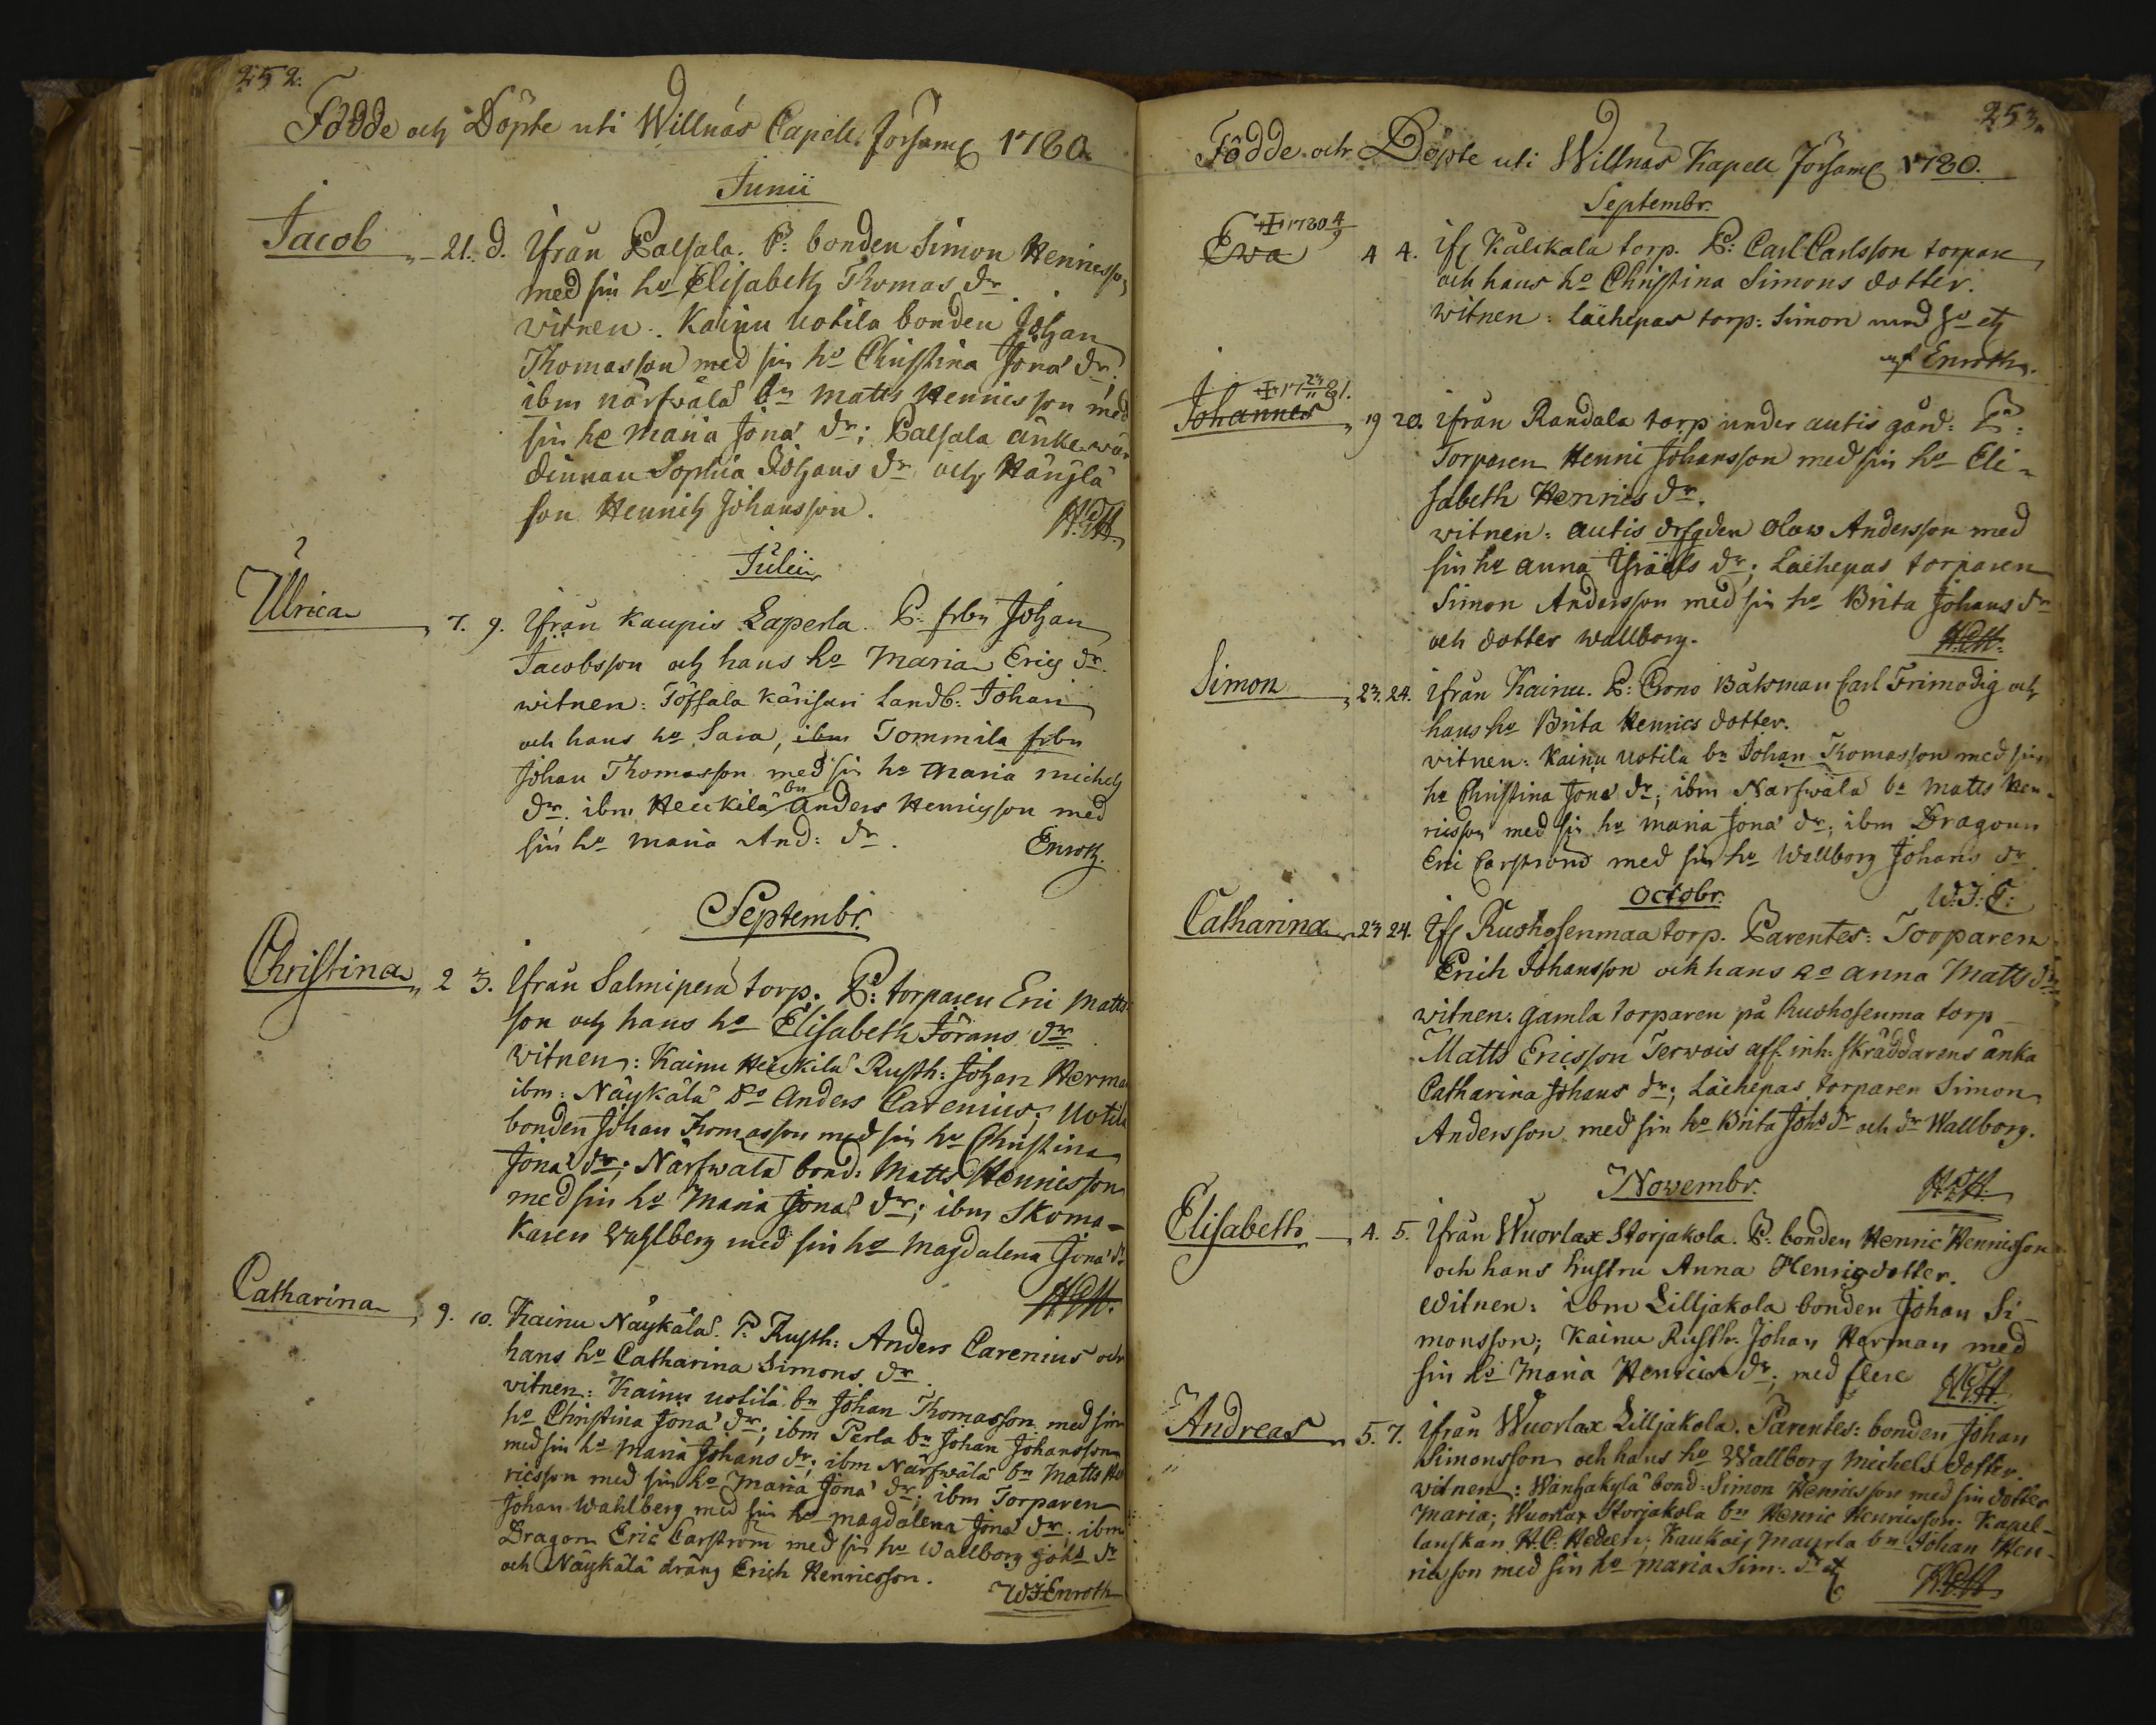 252.
Födde och Döpte uti Willnäs Capell Församl 1780.
Junii
Jacob 21. d. Ifrån Palsala. P: bonden Simon Henricsson
med sin ho Elisabeth Thomas dr
witnen: Kainu Uotila bonden Johan
Thomasson med sin ho Christina Jona dr;
ibm närfwälä bn Matts Henricsson med
sin ho Maria Jona dr; Palsala änke wär
dinnan Sophia Johans dr och
son Henrich Johansson.
Julii
Ulrica 7. 9. Ifrån Kaupis Laperla. P: frbn Johan
Jacobsson och hans ho Maria Erics dr.
witnen: Töffala Känsari Landb: Johan
och hans ho Sara, ibm Tommila frbn
Johan Thomasson med sin ho Maria Michels
dr. ibm Heickilä bn Anders Henricsson med
sin ho Maria And: dr. Enroth.
Septembr.
Christina 2 3. Ifrån Salmiperä torp. P: torparen Eric Matts
son och hans ho Elisabeth Jörans dr
witnen: Kainu Heickilä Rusth: Johan Herman
ibm: Näykälä Do Anders Carenius; Uotila
bonden Johan Thomasson med sin ho Christina
Jona dr; Närfwälä bond: Matts Henricsson
med sin ho Maria Jona dr; ibm Skoma=
karen Wahlberg med sin ho Magdalena Jona dr
Catharina 9. 10. Kainu Näykälä. P: Rusth: Anders Carenius och
hans ho Catharina Simons dr.
witnen: Kainu uotila bn Johan Thomasson med sin
ho Christina Jona dr; ibm Perla bn Johan Johansson
med sin ho Maria Johans dr; ibm Närfwälä bn Matts Hen
ricsson med sin ho Maria Jona dr; ibm Torparen
Johan Wahlberg med sin ho Magdalena Jona dr. ibm
Dragon Eric Carström med sin ho Wallborg Johs dr
och Näykälä dräng Erich Henricsson.
W:J:Enroth
253.
Födde och Döpte uti Willnäs Kapell Församl 1780.
Septembr.
1780 4/9
Eva 4 4. Ifr Kälckala torp. P: Carl Carlsson torpare
och hans ho Christina Simons dotter.
witnen: Läehepas torp: Simon med ho etc
af Enroth.
17 23/11 81.
Johannes 19 20. ifrån Randala torp under autis gård: P:
Torparen Henric Johansson med sin ho Eli=
sabeth Henrics dr.
witnen: autis Olow Andersson med
sin ho Anna Israels dr; Läehepas torparen
Simon Andersson med sin ho Brita Johans dr
och dotter Wallborg.
Simon 23. 24. ifrån Kainu. P: Crono Båtsman Carl Frimodig och
hans ho Brita Henrics dotter.
witnen: Kainu uotila bn Johan Thomasson med sin
ho Christina Jona dr; ibm Narfwälä bn Matts Hen=
ricsson med sin ho Maria Jona dr; ibm Dragoun
Eric Carström med sin ho Wallborg Johans dr.
Octobr. W:J:E:
Catharina 23 24. Ifr Ruohosenmaa torp. Parentes: Torparen
Erich Johansson och hans ho Anna Matts dr
witnen: gamla torparen på Ruohosenma torp
Matts Ericsson Terwois aff. inh: skräddarens änka
Catharina Johans dr; Läehepas torparen Simon
Andersson med sin ho Brita Johs dr och dr Wallborg.
Novembr.
Elisabeth 4. 5. Ifrån Wuorlax Storjakola. P: bonden Henric Henricsson
och hans hustru Anna Henrigsdotter.
Witnen: ibm Lilljakola bonden Johan Si=
monsson; Kainu Rusth: Johan Herman med
sin ho Maria Henrics dr; med flere
Andreas 5. 7. ifrån Wuorlax Lilljakola. Parentes: bonden Johan
Simonsson och hans ho Wallborg Michels dotter.
witnen: Wanhakylä bond: Simon Henricsson med sin dotter
Maria; Wuorlax Storjakola bn Henric Henricsson. Kapel=
lanskan H.C. Hedeen; Kaukois Mayrla bn Johan Hen=
ricsson med sin ho Maria Sim: dr etc